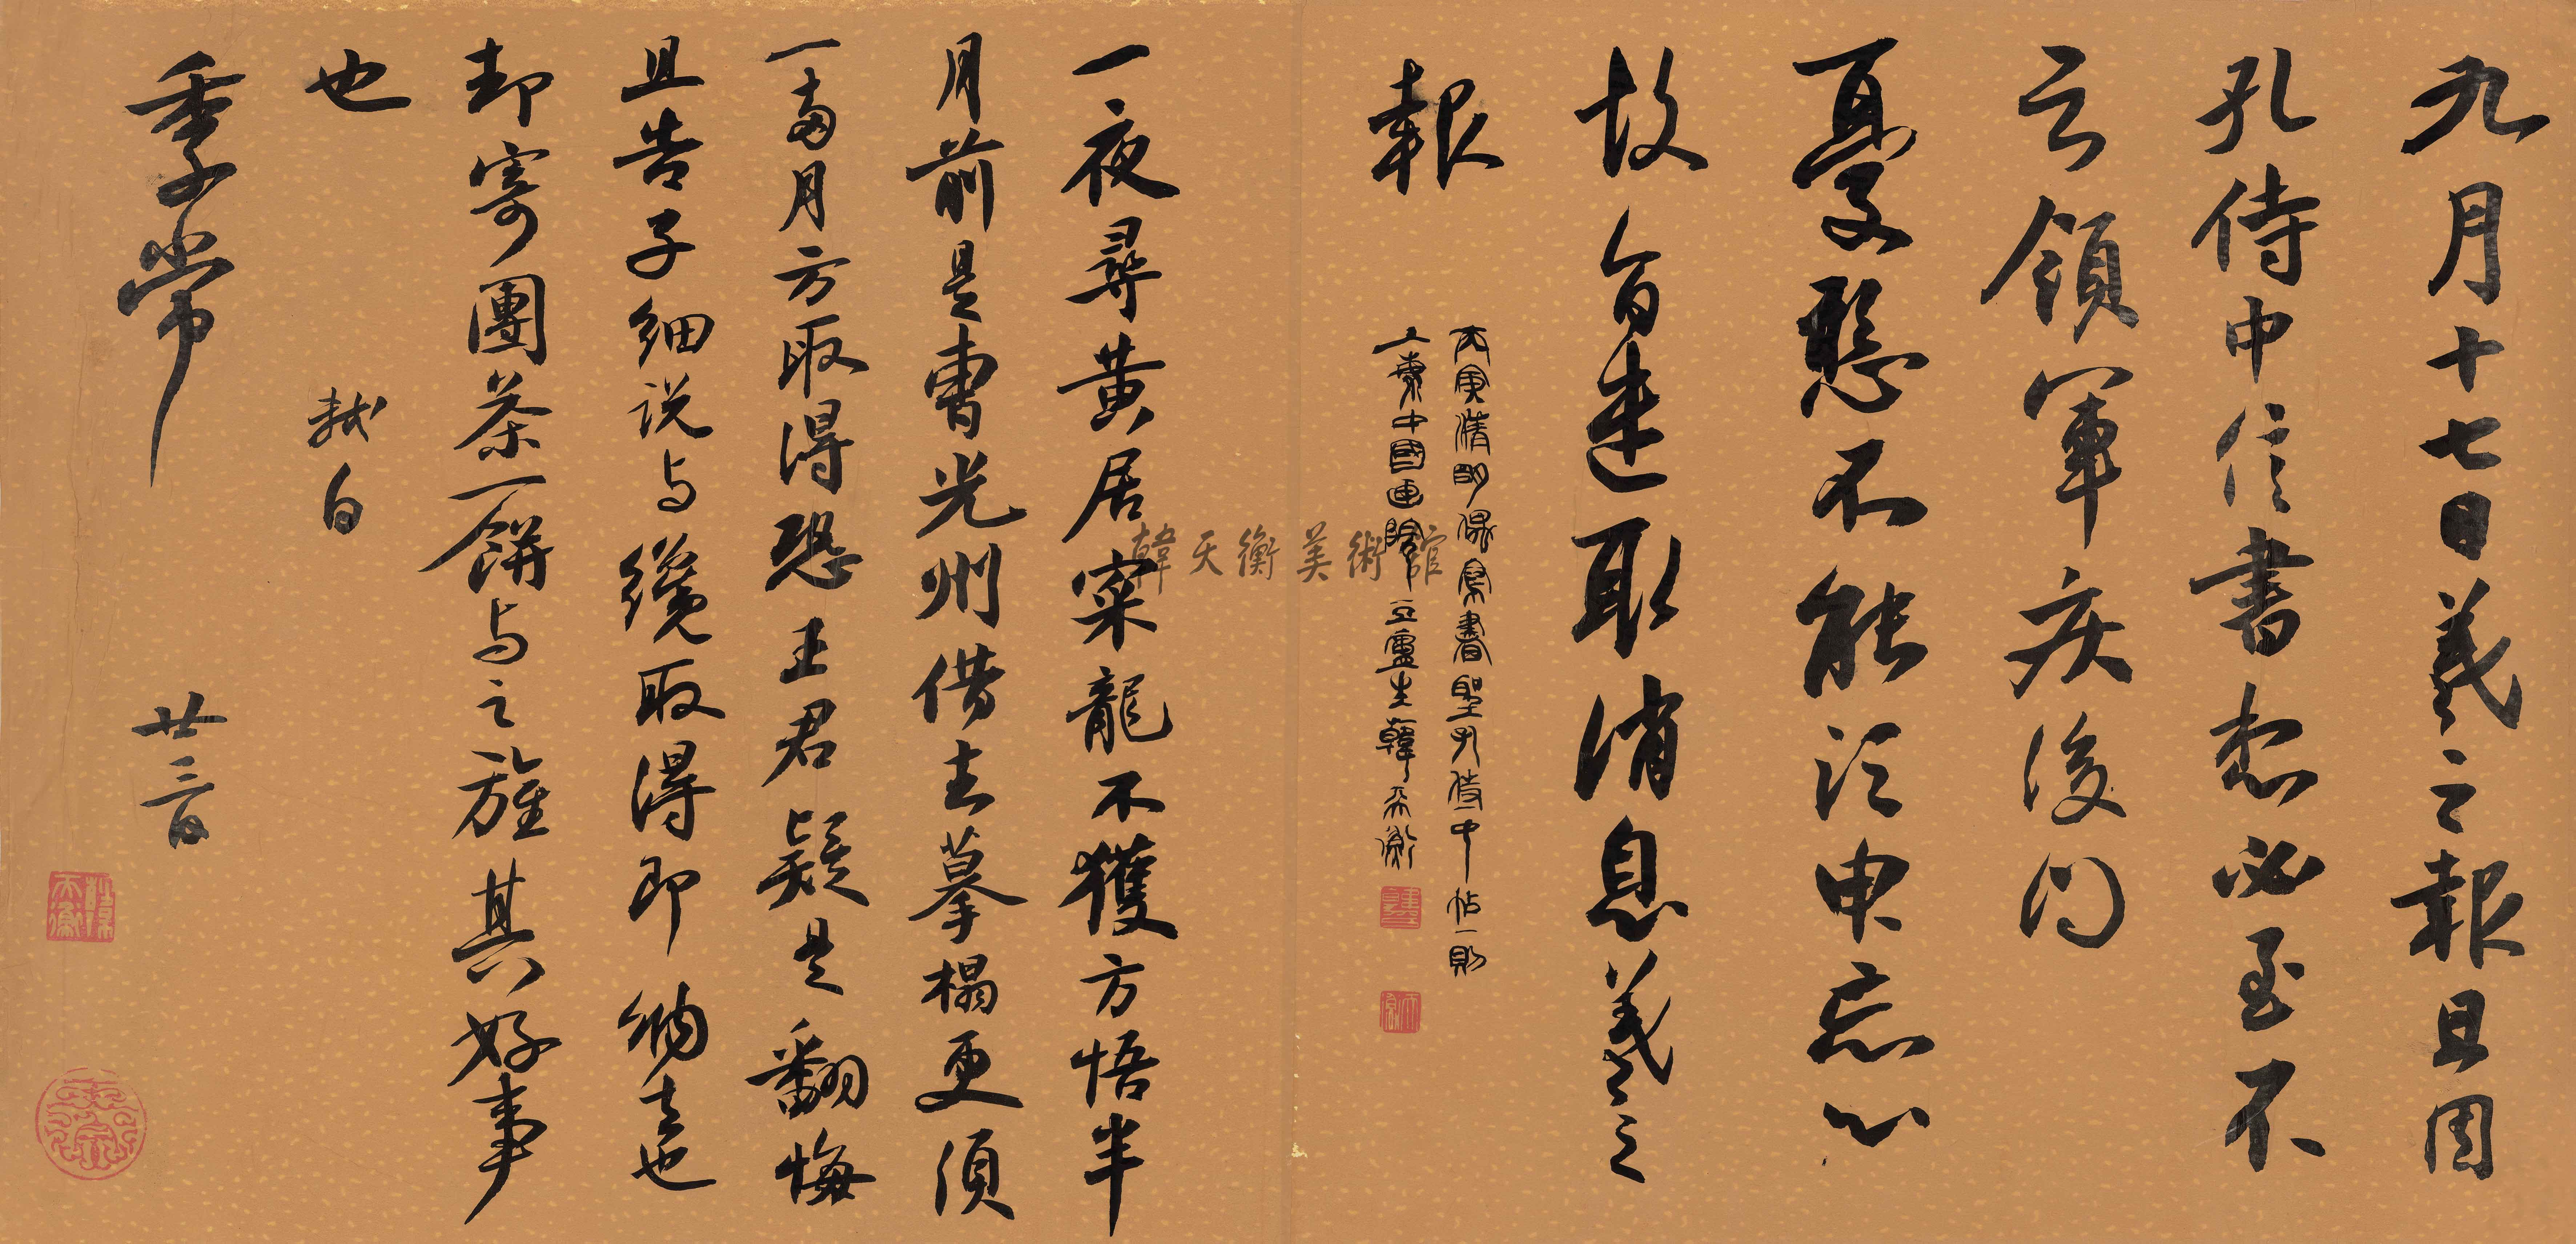 九月十七日羲之報且因
孔侍中信書想必至不
云領軍疾後問
憂懸不能須臾忘心
故旨遣取消息羲之
報
丙寅清明偶寫書聖孔侍中帖一則
上海中國画院豆廬主韓天衡
一夜尋黃居寀龍不獲方悟半
月前是曹光州借去摹榻更須
一兩月方取得恐王君疑是翻悔
且告子細説与纔取得即納去也
却寄團茶一餅与之旌其好事
也 軾白
季常 廿三日
韓天衡
韓天衡美術館